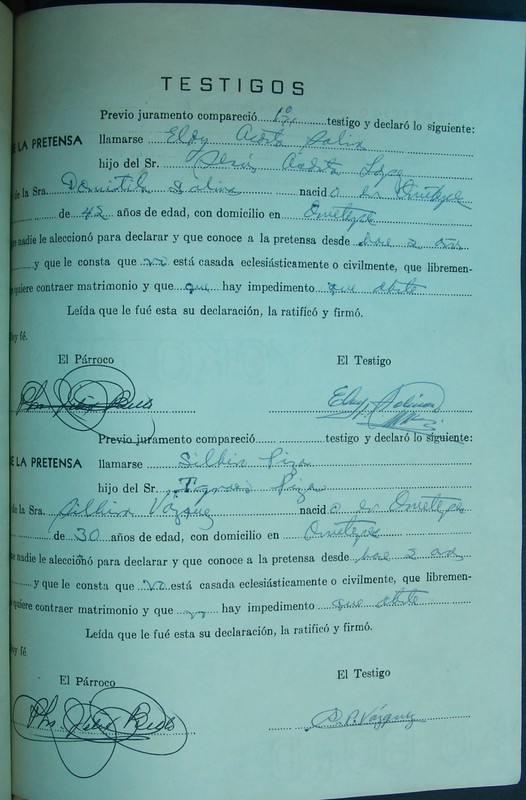 TESTIGOS
Previo juramento compareció 1o testigo y declaró lo siguiente:
LA PRETENSA llamarse Eloy Acosta Salina
hijo del Sr. Jesús Acosta Lopez
de la Sra. Domitila Salina nacido en Ometepe
de 42 años de edad, con domicilio en Ometepe
ue nadie le aleccionó para declarar y que conoce a la pretensa desde hace 2
y que le consta que no está casada eclesiásticamente o civilmente, que libremen-
quiere contraer matrimonio y que hay impedimento que obste
Leída que le fué esta su declaración, la ratificó y firmó.
oy fé.
El Párroco El Testigo
Previo juramento compareció testigo y declaró lo siguiente:
E LA PRETENSA llamarse Piza
hijo del Sr. Piza
de la Sra. Vázquez nacido en Ometepe
de 30 años de edad, con domicilio en Ometepe
ue nadie le aleccionó para declarar y que conoce a la pretensa desde hace 2
y que le consta que no está casada eclesiásticamente o civilmente, que libremen-
quiere contraer matrimonio y que no hay impedimento que obste
Leída que le fué esta su declaración, la ratificó y firmó.
oy fé.
El Párroco El Testigo
Vázquez